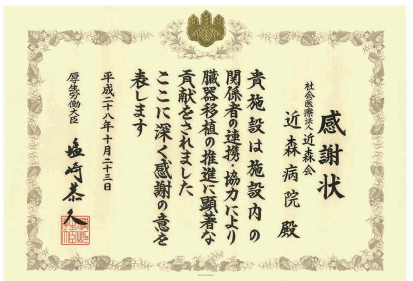 感謝状
社会医療法人近森会
近森病院殿
貴施設は施設内の
関係者の連携・協力により
臓器移植の推進に顕著な
貢献をされました
ここに深く感謝の意を
表します
平成二十八年十月二十三日
厚生労働大臣 塩崎恭久